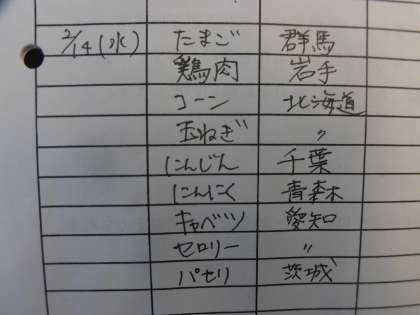 2/14(水) たまご 群馬
鶏肉 岩手
コーン 北海道
玉ねぎ 〃
にんじん 千葉
にんにく 青森
キャベツ 愛知
セロリー 〃
パセリ 茨城